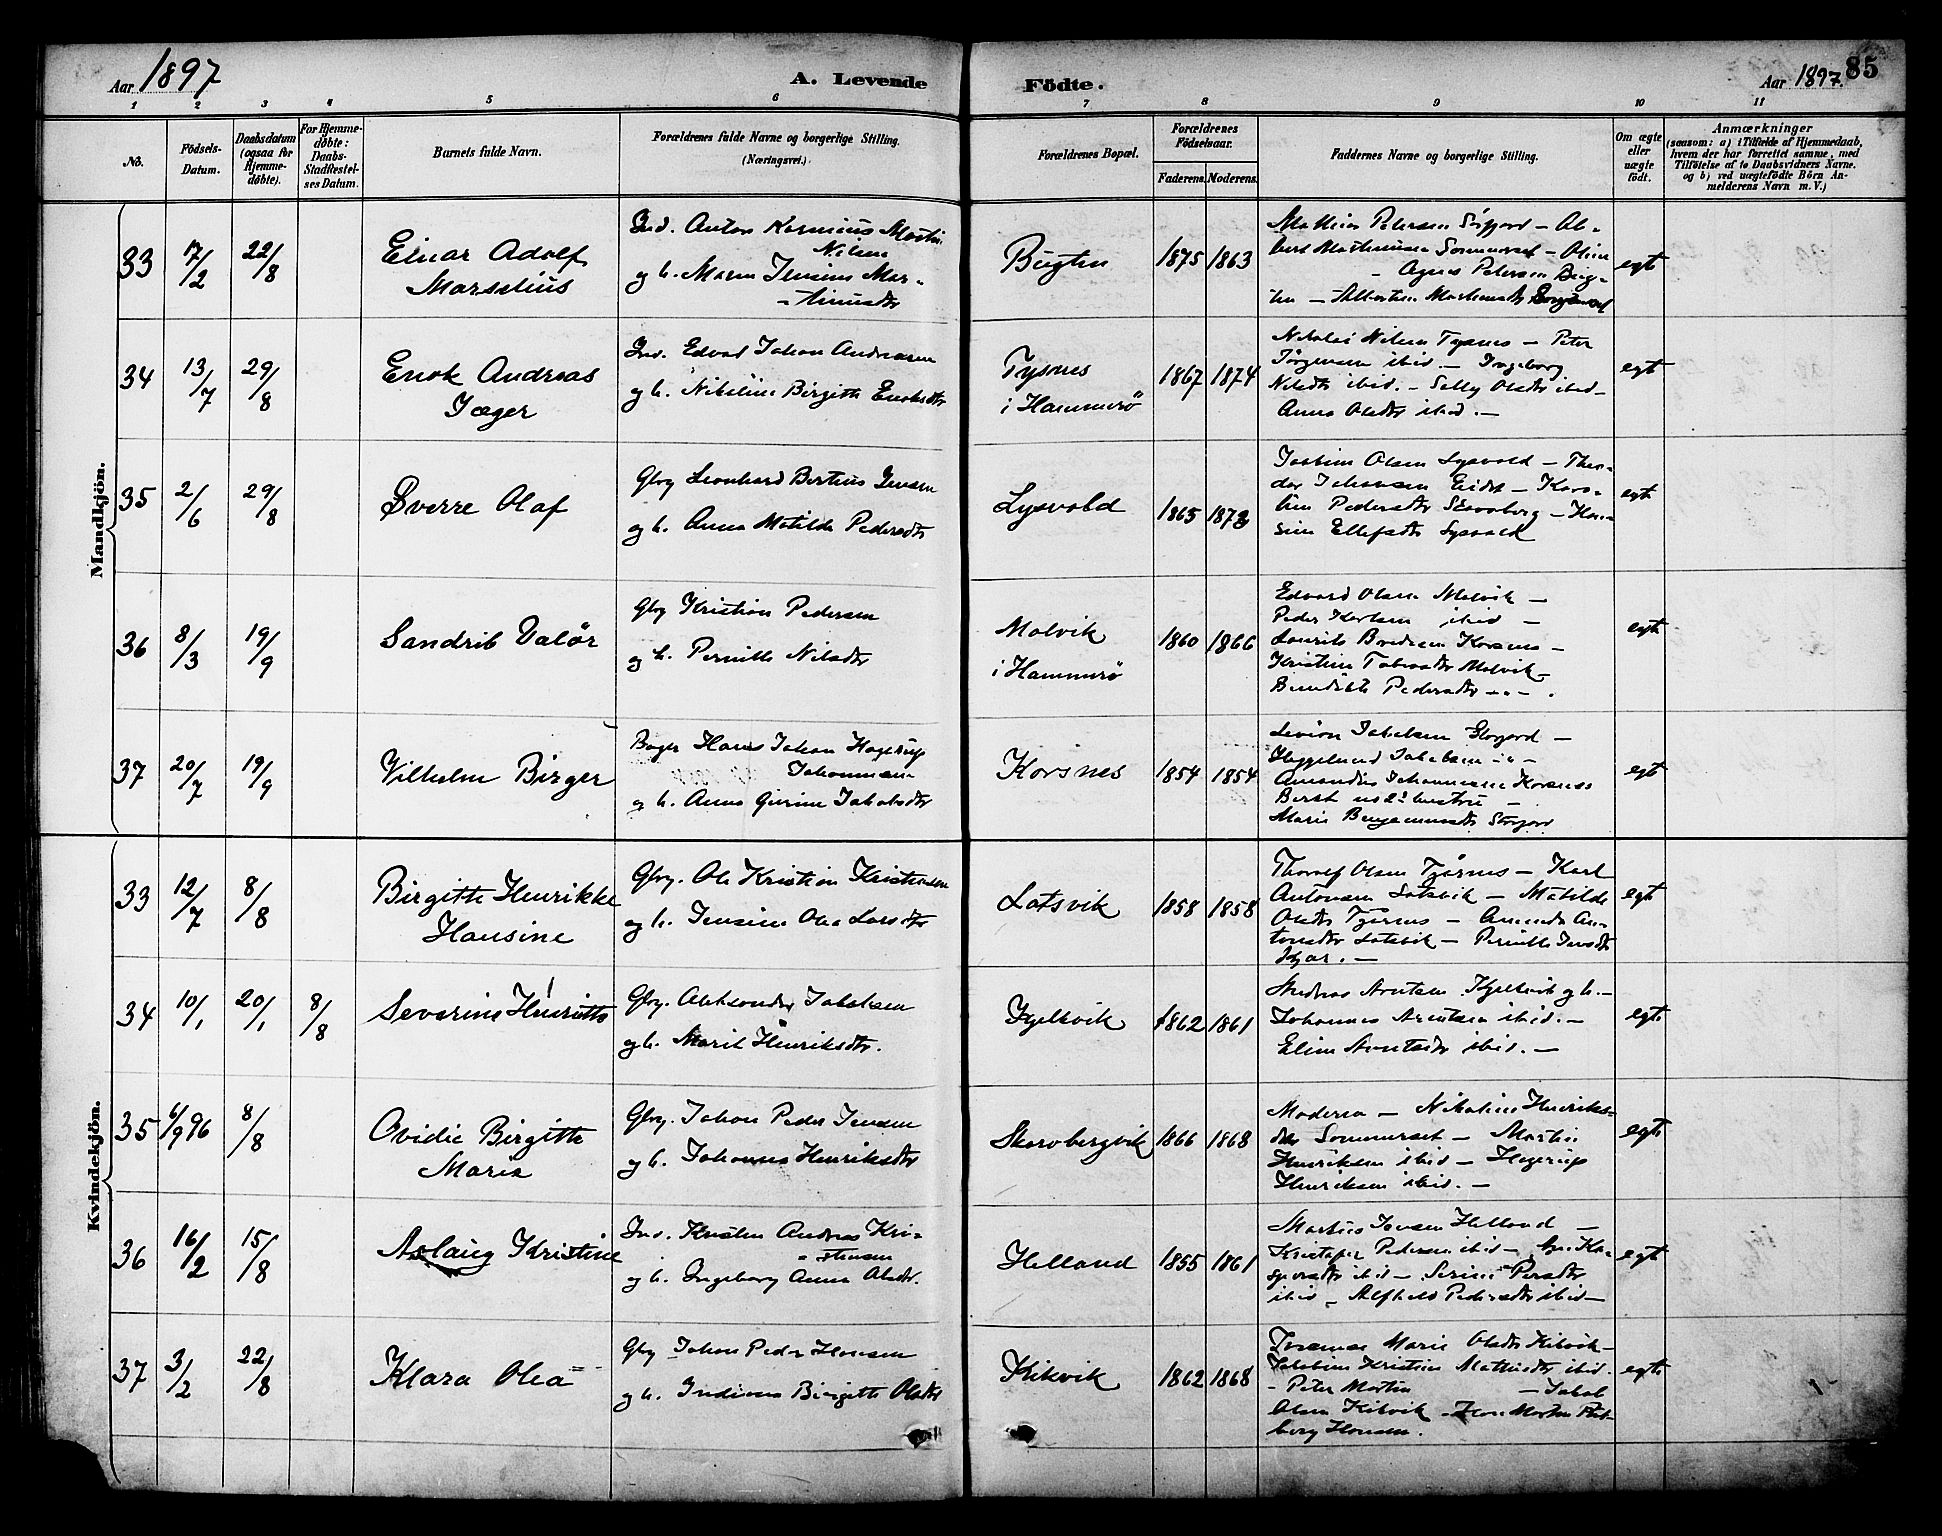 Aar 1897
A. Levende
Födte.
Aar 1897.
85
1 2 3 4 5 6 7 8 9 10 11
No.
Födsels-
Datum.
Daabsdatum
(ogsaa for
Hjemme-
döbte).
For Hjemme-
döbte:
Daabs-
Stadfæstel-
ses Datum.
Barnets fulde Navn.
Forældrenes fulde Navne og borgerlige Stilling.
(Næringsvei.)
Forældrenes Bopæl.
Forældrenes
Födselsaar.
Faderens. Moderens.
Faddernes Navne og borgerlige Stilling.
Om ægte
eller
uægte
födt.
Anmærkninger
(saasom: a) i Tilfælde af Hjemmedaab,
hvem der har forrettet samme, med
Tilföielse af to Daabsvidners Navne.
og b) ved uægtefödte Börn An-
melderens Navn m. V.)
Mandkjön.
33 17/2 22/8
Einar Adolf
Marselius
Ind. Anton Kornius Martin
Nilsen
og h. Maren Jensine Mar-
tinusdtr
Bugten
1875 1863
Mathias Petersen Sörfjord – Al-
bert Mathiusen Sommerset – Oline
– Agnes Petersen Bug-
ten –
egte
34 13/7 29/8
Enok Andreas
Jæger
Ind. Edvat Johan Andreasen
og h. Nikoline Birgitte Enoksdtr
Tysnes
i Hammerö
1867 1874
Nikolai Nilsen Tysnes – Peter
Jörgensen ibid – Ingeborg
Nilsdtr ibid. – Selly Olsdtr ibid –
Anna Olsdtr ibid. –
egte
35 2/6 29/8
Sverre Olaf
Gbrg Leonhard Berteus Jensen
og h. Anna Matilde Pedersdtr
Lysvold
1865 1873
Joakim Olsen Lysvold – Theo-
dor Johansen Eidet – Kors-
tine Pedersdtr Skovberg – Han-
sine Ellefsdtr Lysvold
egte
36 8/3 19/9
Sandrik Valör
Gbrg Kristian Pedersen
og h. Pernille Nilsdtr
Molvik
i Hammerö
1860 1866
Edvard Olsen Molvik –
Peder Karlsen ibid –
Laurits Bredesen Korsnes –
Kristine Tobiasdtr Molvik –
Benedikte Pedersdtr – " – .
egte
37 20/7 19/9
Vilhelm Birger
Bager Hans Johan Hagerup
Johannesen
og h. Anna Gurine Jakobsdtr
Korsnes
1854 1854
Jakobsen Storjord –
Jakobsen – " –
Amandus Johannesen Korsnes
Beret hustru –
Marie Benjaminsdtr Storjord
egte
Kvindekjön.
33 12/7 8/8
Birgitte Henrikke
Hansine
Gbrg. Ole Kristian Kristensen
og h. Jensine Olea Larsdtr
Lotsvik
1858 1858
Thoralf Olsen Tjårnes – Karl
Antonsen Lotsvik – Matilde
Olsdtr Tjårnes – Amanda An-
tonsdtr Lotsvik – Pernille Jensdtr
egte
34 10/1 20/1 8/8
Severine Henriette
Gbrg. Aleksander Jakobsen
og h. Marit Henriksdtr.
Kjelkvik
1862 1861
Andreas Arntsen Kjelkvik og h. –
Johannes Arntsen ibid. –
Eline Arntsdtr ibid. –
egte
35 6/9 96 8/8
Ovidie Birgitte
Marie
Gbrg. Johan Peder Jensen
og h. Johanna Henriksdtr
Skarvbergvik
1866 1868
Moderen – Nikoline Henriks-
dtr Sommerset – Martin
Henriksen ibid – Hagerup
Henriksen ibid. –
egte
36 16/2 15/8
Aslaug Kristine
Ind. Kristen Andreas Kri-
stensen
og h. Ingeborg Anna Olsdtr.
Helland
1855 1861
Martius Jensen Helland –
Kristofer Pedersen ibid –
ibid – Serine Persdtr
ibid – Alfhild Pedersdtr ibid –
egte
37 3/2 22/8
Klara Olea
Gbrg Johan Peder Hansen
og h. Indiana Birgitte Olsdtr
Kikvik
1862 1868
Marie Olsdtr Kikvik –
Kristine ibid.
– Peter Morten – Jakob
Olsen Kikvik – Hans Morten
berg Hansen.
egte